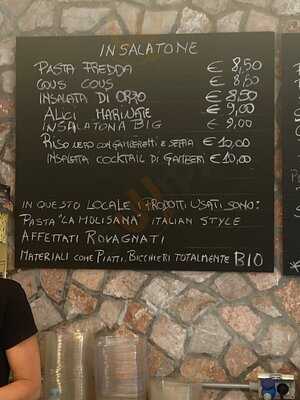 INSALATONE
PASTA FREDDA € 8,50
COUS COUS € 8,50
INSALATA DI ORZO € 8,50
ALICI MARINATE € 9,00
INSALATONA BIG € 9,00
RISO NERO CON GAMBERETTI E SEPPIA € 10,00
INSALATA COCKTAIL DI GAMBERI € 10,00
IN QUESTO LOCALE I PRODOTTI USATI SONO:
PASTA "LA MOLISANA" ITALIAN STYLE
AFFETTATI ROVAGNATI
MATERIALI COME PIATTI, BICCHIERI TOTALMENTE BIO